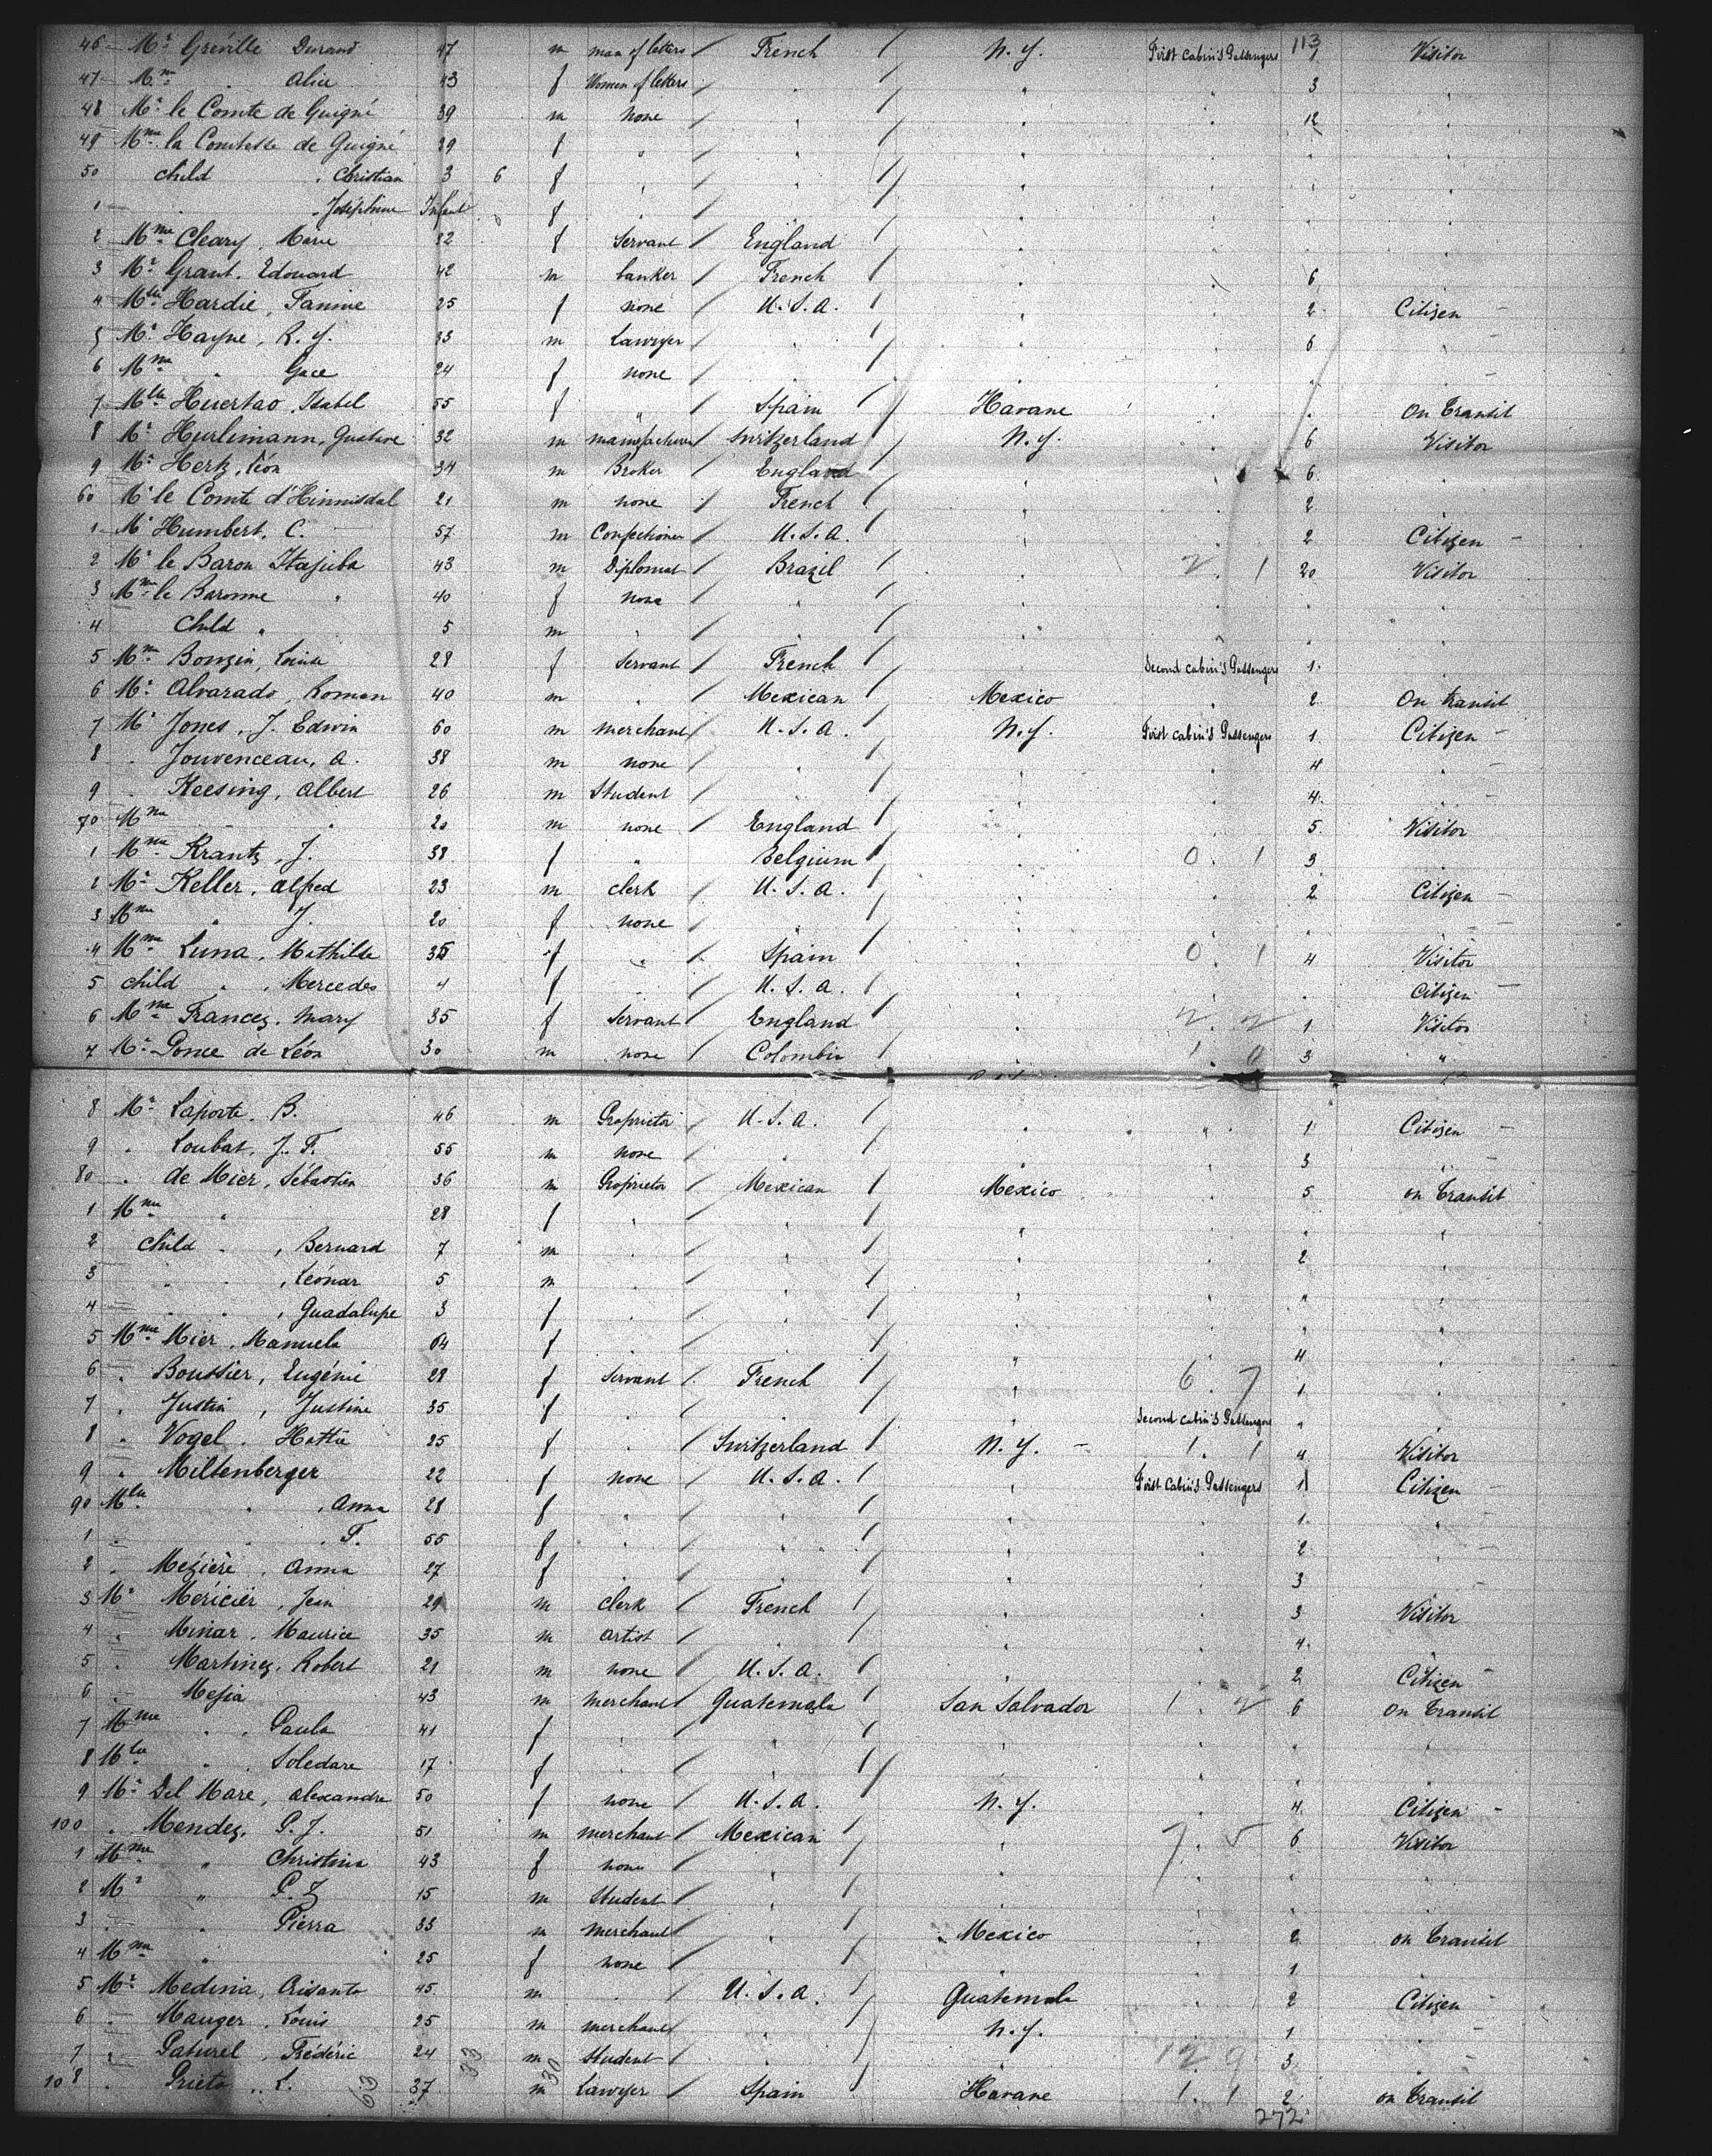 113
46 Mr Gréville Durand 47 m man of letters French N.Y. First Cabin's Passengers 1 Visitor
47 Mme . Alice 43 f Women of letters . . . 3 .
48 Mr le Comte de Guigné 39 m none . . . 12 .
49 Mme la Comtesse de Guigné 29 f " . . . . .
50 child . Christian 3 6 f . . . . . .
1 . . Joséphine Infant f . . . . . .
2 Mme Cleary, Marie 32 f Servant England . . . .
3 Mr Grant, Edouard 42 m banker French . . 6 .
4 Mlle Hardie, Fannie 25 f none U.S.A. . . 2 Citizen
5 Mr Hayne, R. Y. 33 m Lawyer . . . 6 "
6 Mme . Grace 24 f none . . . . .
7 Mlle Huertao, Isabel 55 f " Spain Havane . . on transit
8 Mr Hurlimann, Gustave 32 m manufacturer Switzerland N.Y. . 6 Visitor
9 Mr Hertz, Léon 34 m Broker England . . 6 .
60 Mr le Comte d'Hinnisdal 21 m none French . . 2 .
1 Mr Humbert, C. 57 m Confectioner U.S.A. . . 2 Citizen
2 Mr le Baron Itajuba 43 m Diplomat Brazil . 2 . 1 20 Visitor
3 Mme la Baronne " 40 f none . . . . .
4 Child " 5 m . . . . . .
5 Mme Bonzin, Louise 28 f Servant French . Second Cabin's Passengers 1 .
6 Mr Alvarado, Roman 40 m . Mexican Mexico . 2 On transit
7 Mr Jones, J. Edwin 60 m merchant U.S.A. N.Y. First Cabin's Passengers 1 Citizen
8 . Jouvenceau, A. 38 m none . . . 4 "
9 . Keesing, Albert 26 m Student . . . 4 "
70 Mme . . 20 m none England . . 5 Visitor
1 Mme Krantz, J. 38 f " Belgium . 0 . 1 3 .
2 Mr Keller, Alfred 23 m clerk U.S.A. . . 2 Citizen
3 Mme " J. 20 f none . . . . "
4 Mme Luna, Mathilde 35 f " Spain . 0 . 1 4 Visitor
5 child " , Mercedes 4 f . U.S.A. . . . Citizen
6 Mme Francez, Mary 35 f Servant England . 2 . 2 1 Visitor
7 Mr Ponce de Léon 30 m none Colombia . 1 . 0 3 "
8 Mr Laporte, B. 46 m Proprietor U.S.A. . " 1 Citizen
9 . Loubat, J. F. 55 m none . . . 3 "
80 . de Mier, Sébastien 36 m Proprietor Mexican Mexico . 5 on transit
1 Mme " 28 f . . . . . .
2 child . , Bernard 7 m . . . . 2 .
3 . . , Léonar 5 m . . . . " .
4 . . , Guadalupe 3 f . . . . " .
5 Mme Mier, Manuela 64 f . . " . 4 .
6 . Boussier, Eugénie 28 f Servant French . 6 . 7 1 .
7 . Justin, Justine 35 f . . . Second Cabin's Passengers . .
8 . Vogel, Hattie 25 f . Switzerland N.Y. 1 . 1 4 Visitor
9 . Miltenberger 22 f none U.S.A. . First Cabin's Passengers 1 Citizen
90 Mlle . , Anna 28 f . . . . 1 "
1 . . , F. 55 f . . . . 2 .
2 . Mezière, Anna 27 f . . . . 3 .
3 Mr Méricier, Jean 29 m Clerk French . . 3 Visitor
4 . Minar, Maurice 35 m artist . . . 4 .
5 . Martinez, Robert 21 m none U.S.A. . . 2 Citizen
6 . Mejia 43 m merchant Guatemala San Salvador 1 . 2 6 On transit
7 Mme . . Paula 41 f . . . . . .
8 Mlle . . Soledare 17 f . . . . . .
9 Mr Del Mare, Alexandre 50 f none U.S.A. N.Y. . 4 Citizen
100 . Mendez, P. J. 51 m merchant Mexican . 7 . 5 6 Visitor
1 Mme " Christina 43 f none . . . . .
2 Mr " P. Z 15 m student . . . . .
3 . . Pierra 33 m merchant . Mexico . 2 on transit
4 Mme " 25 f none . . . 1 .
5 Mr Medina, Crisanto 45 m . U.S.A. Guatemala . 2 Citizen
6 . Mauger, Louis 25 m merchant . N.Y. . 1 "
7 . Paturel, Frédéric 24 33 m student . . 12 9 3 "
108 . Prieto, L. 63 37 m 30 Lawyer Spain Havane 1 . 1 2 on transit
272